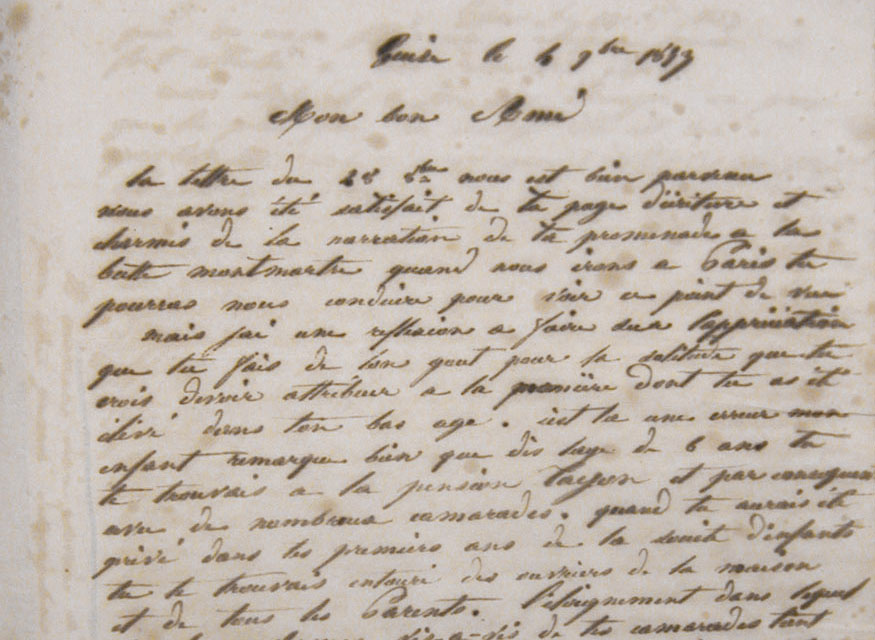 Guise le 6 9bre 1857
Mon bon Amié
la lettre du 28 8bre nous est bien parvenu
nous avons été satisfait de ta page d'ecriture et
charmés de la narration de ta promenade a la
butte montmartre quand nous irons a Paris tu
pourras nous conduire pour voir ce point de vue
mais j'ai une reflexion a faire sur l'appréciation
que tu fais de ton gout pour la solitude que tu
crois devoir attribuer a la manière dont tu as été
élévé dans ton bas age. c'est la une erreur mon
enfant remarque bien que dès l'age de 6 ans tu
te trouvais a la pension et par consequent
avec de nombreux camarades. quand tu aurais été
privé dans tes premiers ans de la société d'enfants
tu te trouvais entouré des ouvriers de la maison
et de tous tes Parents. l'éloignement dans lequel
vis-a-vis de tes camarades tant